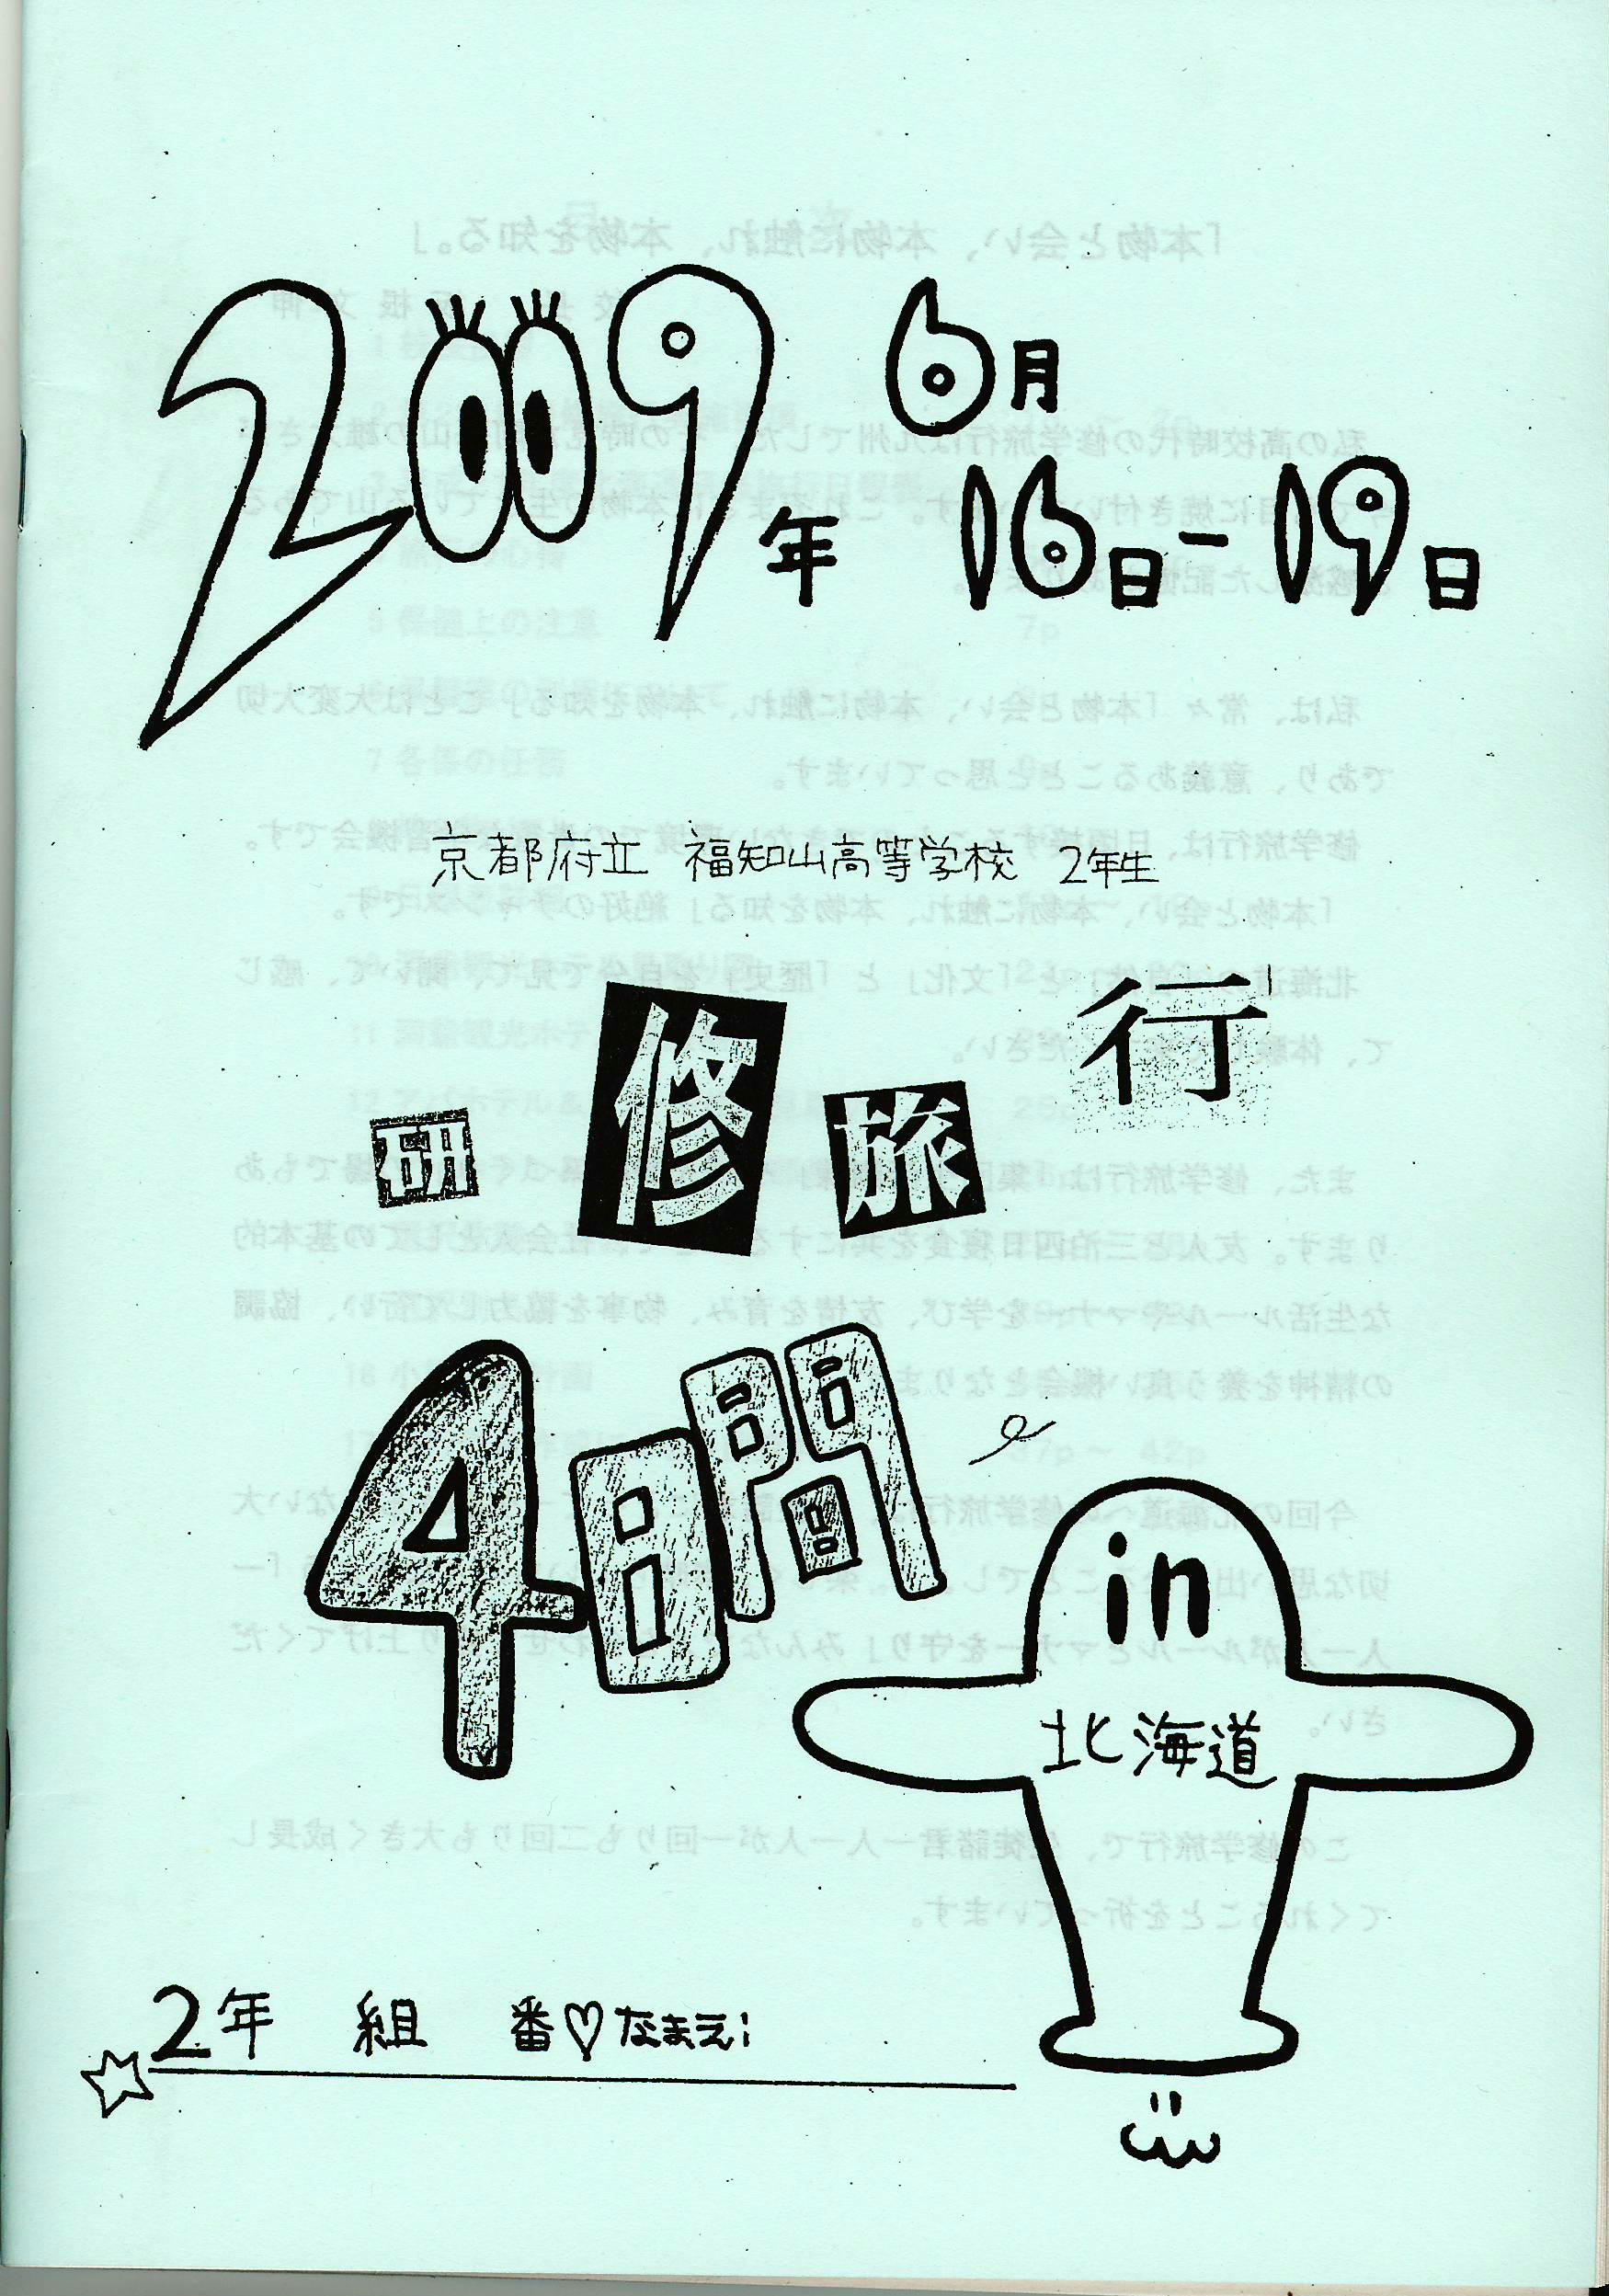 2009年 6月
16日-19日
京都府立 福知山高等学校 2年生
研修旅行
4日間
in
北海道
2年 組 番♡なまえ: